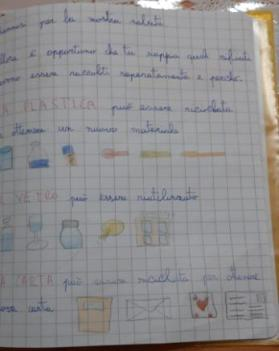 per la nostra salute
è opportuno che tu sappia quali rifiuti
essere raccolti separatamente e perché.
A PLASTICA può essere riciclata
ottenere un nuovo materiale
VETRO può essere riutilizzato
A CARTA può essere riciclata per ottenere
carta